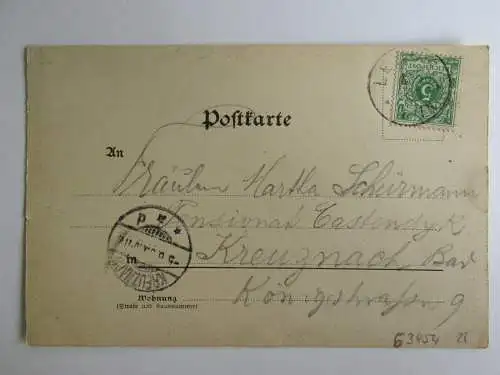 Postkarte
An
Fräulein Martha Schürmann
Pensionat Castendyk
Kreuznach Bad
Königstraße 9
Wohnung
(Straße und Hausnummer)
63454 28